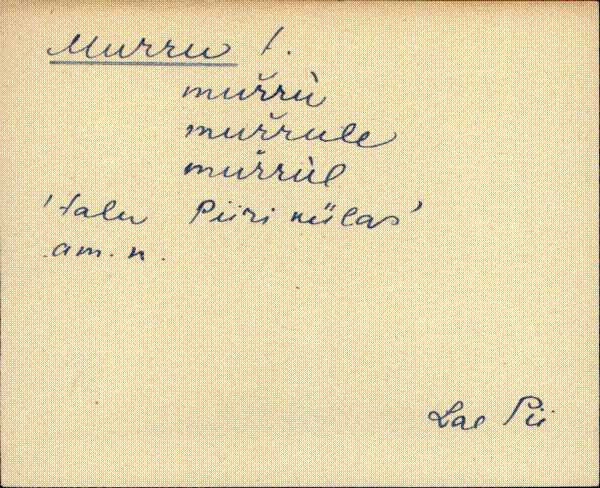 Murru t.
muřrù
muřrule
muřrùl
'talu Piiri külas'
am. n.
Lae Pii